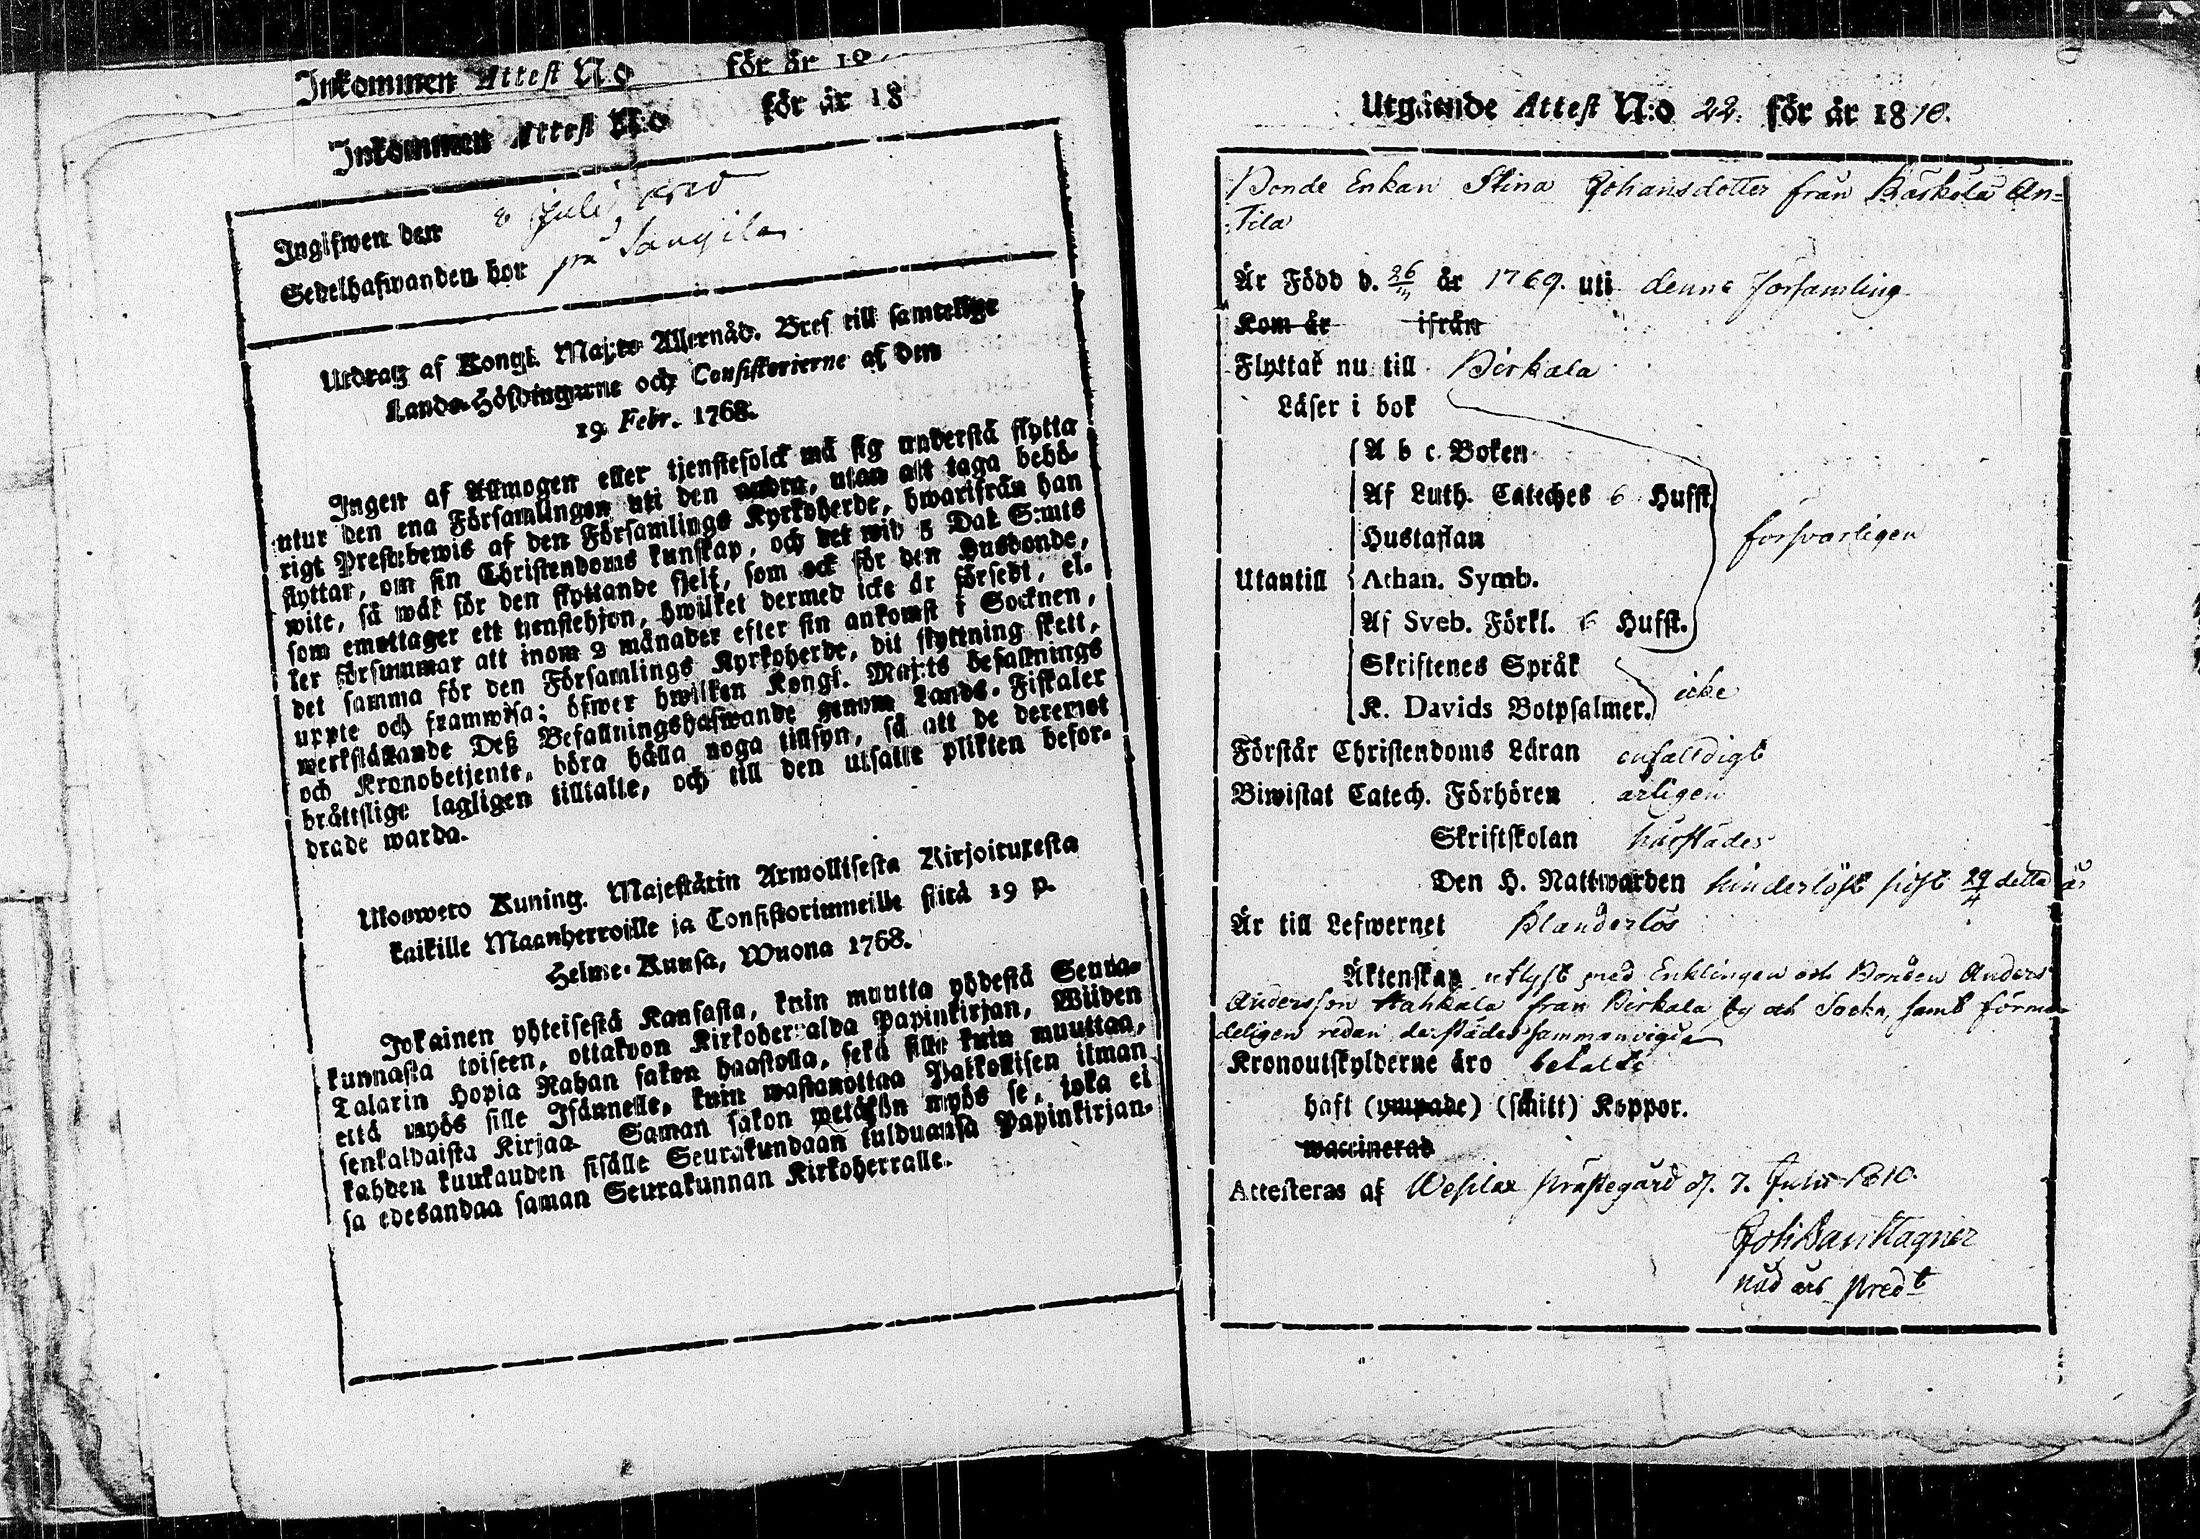 Inkommen Attest N:o för år 18
Inkommen Attest N:o för år 18
Ingifwen den 8 Juli 1810
Sedelhafwanden bor på Saugila
Utdrag af Kongl. Maj:ts Allernåd. Bref till samtelige
Lands-Höfdingarne och Consistorierne af den
19 Febr. 1768.
Ingen af Allmogen eller tjenstefolck må sig understå flytta
utur den ena Församlingen uti den andra, utan att taga behö-
rigt Prestabewis af den Församlings Kyrkoherde, hwarifrån han
flyttar, om sin Christendoms kunskap, och det wid 5 Dal. S:mts
wite, så wäl för den flyttande sjelf, som ock för den Husbonde,
som emottager ett tjenstehjon, hwilket dermed icke är försedt, el-
ler försummar att inom 2 månader efter sin ankomst i Socknen,
det samma för den Församlings Kyrkoherde, dit flyttning skett,
uppte och framwisa; öfwer hwilken Kongl. Maj:ts befallnings
werkställande Deß Befallningshafwande genom Lands-Fiskaler
och Kronobetjente, böra hålla noga tillsyn, så att de deremot
bråttslige lagligen tilltalte, och till den utsatte plikten befor-
drade warda.
Uloswero Kuning. Majestätin Armollisesta Kirjoituxesta
kaikille Maanherroille ja Consistoriumeille siitä 19 p.
Helme-Kuusa, Wuona 1768.
Jokainen yhteisestä Kansasta, kuin muutta yhdestä Seura-
kunnasta toiseen, ottakoon Kirkoherralda Papinkirjan, Wiiden
Talarin Hopia Rahan sakon haastolla, sekä sille kuin muuttaa,
että myös sille Isännelle, kuin wastanottaa Palkollisen ilman
senkaldaista Kirjaa. Saman sakon wetäkön myös se, joka ei
kahden kuukauden sisälle Seurakundaan tulduansa Papinkirjan-
sa edesandaa saman Seurakunnan Kirkoherralle.
Utgående Attest N:o 22. för år 1810.
Bonde Enkan Stina Johansdotter från Kärkölä An-
tila
Är Född d. 26 år 1769. uti denne församling
Kom år ifrån
Flyttar nu till Birkala
Läser i bok
A b c Boken
Af Luth. Cateches 6 Hufst.
Hustaflan försvarligen
Utantill Athan. Symb.
Af Sveb. Förkl. 6 Hufst.
Skriftenes Språk
K. Davids Botpsalmer. icke
Förstår Christendoms Läran enfaldigt
Biwistat Catech. Förhören årligen
Skriftskolan härstädes
Den H. Nattwarden hinderlöst sist 29/4 detta år
Är till Lefwernet Klanderlös
Äktenskap utlyst med Enklingen och Bonden Anders
Andersson Hahkala från Birkala by och Sockn, samt förmo-
deligen redan derstädes sammanvigde
Kronoutskylderne äro betalte
haft (ympade) (sm̃itt) Koppor.
waccinerad
Attesteras af Wesilax Prästegård d. 7. Julii 1810.
Joh Dan Wagner
nåd års Pred:t